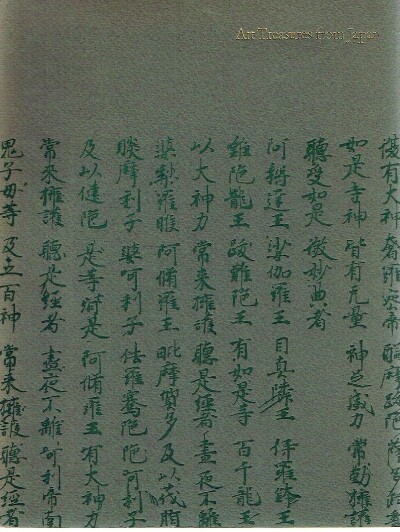 Art Treasures from Japan
有大神 奢羅蜜帝 醯摩跋陀 薩多
如是等神 皆有无量 神足威力 常勤擁護
聽受如是 微妙典者
阿耨達王 娑伽羅王 目真隣王 伊羅鉢王
難陀龍王 跋難陀王 有如是等 百千龍王
以大神力 常來擁護 聽是經者 晝夜不離
婆利羅睺 阿脩羅王 毗摩質多 及以茂脂
睒摩利子 婆呵利子 佉羅騫陀 陀呵利子
及以揵陀 是等皆是 阿脩羅王 有大神力
常來擁護 聽是經者 晝夜不離 訶利帝南
鬼子母等 及五百神 常來擁護 聽是經者